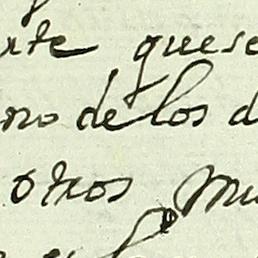 rte quese
no de los d
otros mu